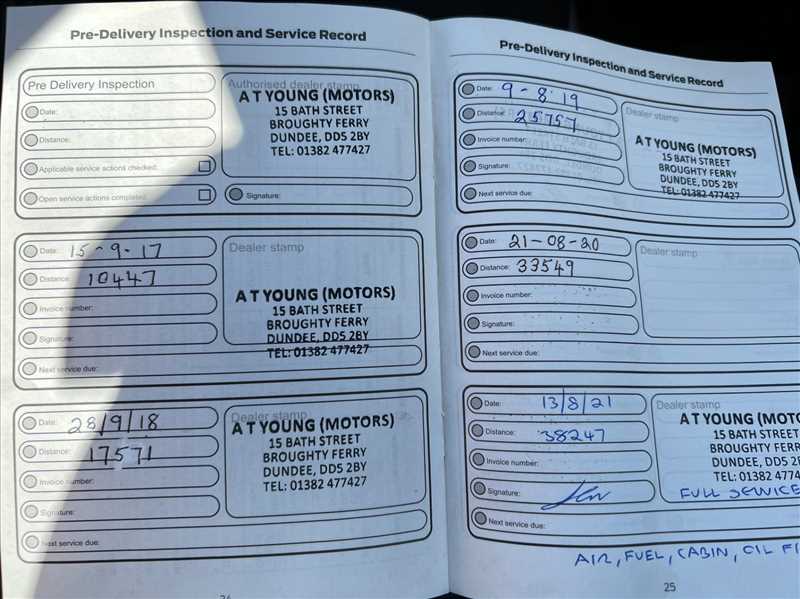 Pre-Delivery Inspection and Service Record
Pre Delivery Inspection
Date:
Distance:
Applicable service actions checked:
Open service actions completed:
Authorised dealer stamp
A T YOUNG (MOTORS)
15 BATH STREET
BROUGHTY FERRY
DUNDEE, DD5 2BY
TEL: 01382 477427
Signature:
Date: 15-9-17
Distance: 10447
Invoice number:
Signature:
Next service due:
Dealer stamp
A T YOUNG (MOTORS)
15 BATH STREET
BROUGHTY FERRY
DUNDEE, DD5 2BY
TEL: 01382 477427
Date: 28/9/18
Distance: 17571
Invoice number:
Signature:
Next service due:
Dealer stamp
A T YOUNG (MOTORS)
15 BATH STREET
BROUGHTY FERRY
DUNDEE, DD5 2BY
TEL: 01382 477427
Pre-Delivery Inspection and Service Record
Date: 9-8-19
Distance: 25757
Invoice number:
Signature:
Next service due:
Dealer stamp
A T YOUNG (MOTORS)
15 BATH STREET
BROUGHTY FERRY
DUNDEE, DD5 2BY
TEL: 01382 477427
Date: 21-08-20
Distance: 33549
Invoice number:
Signature:
Next service due:
Dealer stamp
Date: 13/8/21
Distance: 38247
Invoice number:
Signature:
Next service due:
Dealer stamp
A T YOUNG (MOT
15 BATH STREE
BROUGHTY FERR
DUNDEE, DD5 2B
TEL: 01382 4774
FULL SERVICE
AIR, FUEL, CABIN, OIL FI
25